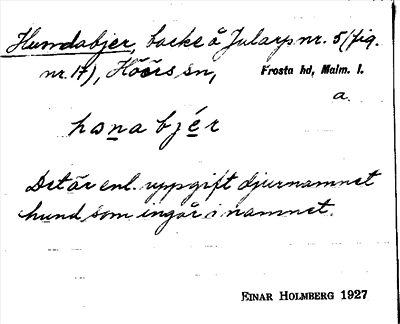 Hundabjer, backe å Jularp nr. 5 (fig.
nr. 17), Höörs sn, Frosta hd, Malm. l.
a.
hɔna bjér
Det är enl. uppgift djurnamnet
hund som ingår i namnet.
EINAR HOLMBERG 1927